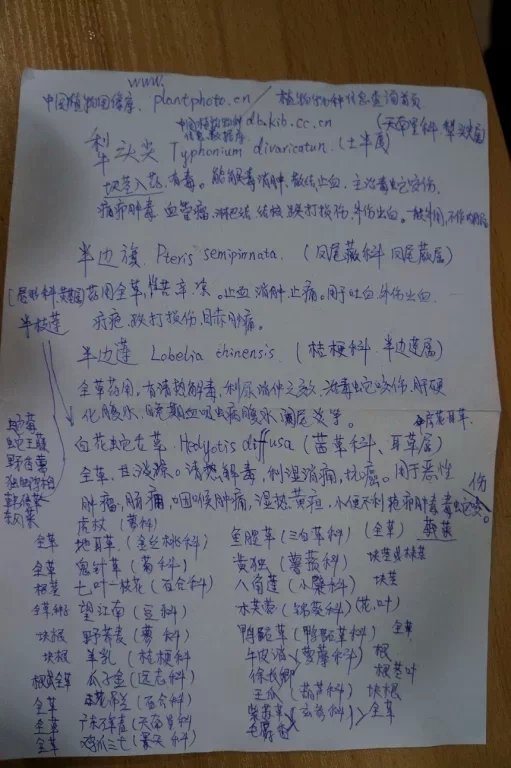 www.
中国植物图像库. plantphoto.cn 植物物种信息查询首页
中国植物物种信息数据库 db.kib.cc.cn (天南星科 犁头尖属)
犁头尖 Typhonium divaricatum. (土半夏)
块茎入药, 有毒。能解毒消肿, 散结止血. 主治毒蛇咬伤.
痈疖肿毒 血管瘤. 淋巴结结核 跌打损伤. 外伤出血。一般外用, 不作内服
半边旗. Pteris semipinnata. (凤尾蕨科 凤尾蕨属)
药用全草, 性苦辛.凉。止血 消肿 止痛。用于吐血.外伤出血.
半枝莲 疔疮. 跌打损伤. 目赤肿痛。
半边莲 Lobelia chinensis. (桔梗科. 半边莲属)
全草药用. 有清热解毒, 利尿消肿之效. 治毒蛇咬伤. 肝硬
化腹水. 晚期血吸虫病腹水.阑尾炎等。
白花蛇舌草. Hedyotis diffusa (茜草科、耳草属)
全草. 甘淡凉。清热解毒, 利湿消痛, 抗癌。用于恶性
肿瘤, 肠痈, 咽喉肿痛, 湿热黄疸. 小便不利 疮疖肿毒 毒蛇咬伤。
蛇莓
野台薰
虎杖 (蓼科)
鱼腥草 (三白草科) (全草)
全草 地耳草. (金丝桃科)
黄独 (薯蓣科) 块茎
全草 鬼针草 (菊科)
八角莲 (小檗科) 块茎
根茎 七叶一枝花 (百合科)
木芙蓉 (锦葵科) (花, 叶)
望江南 (豆科)
鸭跖草 (鸭跖草科) 全草
块根 野荞麦 (蓼科)
牛皮消 (萝藦科) 根
块根 羊乳 (桔梗科
徐长卿 根茎叶
瓜子金 (远志科)
王瓜 (葫芦科) 块根
全草 (百合科)
(玄参科) 全草
全草 广东万年青 (天南星科)
全草 鸡爪三七 (景天科)